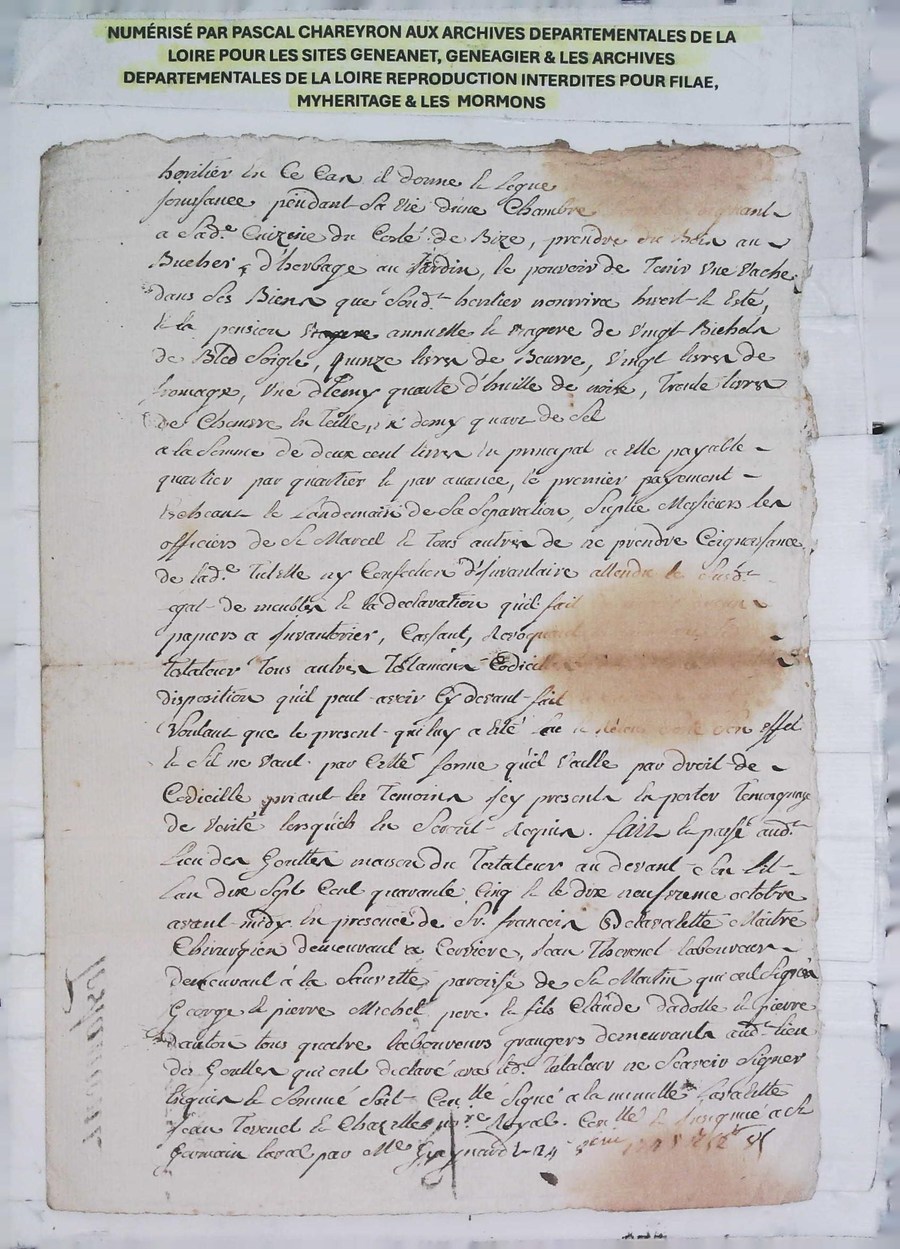 NUMÉRISÉ PAR PASCAL CHAREYRON AUX ARCHIVES DEPARTEMENTALES DE LA
LOIRE POUR LES SITES GENEANET, GENEAGIER & LES ARCHIVES
DEPARTEMENTALES DE LA LOIRE REPRODUCTION INTERDITES POUR FILAE,
MYHERITAGE & LES MORMONS
heritier En Ce Cas il donne & legue
Jouissance pendant Sa Vie d'une Chambre
a Sad.e Cuizine du Coté de Bize, prendre du Bois au
Bucher & d'herbage au Jardin, le pouvoir de Tenir Vne Vache
dans Ses Biens que Sond.t heritier nourrira hivert & Esté,
& la pension annuelle & viagere de Vingt Bichets
de Bled Soigle, Quinze livres de Beurre, Vingt livres de
fromage, Vne demy quarte d'huille de noix, Trente livres
de Chanvre En Teille, demy quart de Sel
a la Somme de deux cent livres En principal a elle payable
quartier par quartier & par avance, le premier payement
Echeant le Landemain de Sa Separation, Suplie Messieurs les
officiers de St Marcel & Tous autres de ne prendre Coignoissance
de lad.e Tutelle ny Confection d'Inventaire attendu le
egat de meubles & la declaration qu'il fait
papiers a Inventorier, Cassant, Revoquant
testateur Tous autres Testamens Codicilles
disposition qu'il peut avoir Cy devant fait
Voulant que le present qui luy a Eté Lu effet
& S'il ne Vaut par Cette forme qu'il Vaille par droit de
Codicille priant les Temoins Icy presents En porter Temoignage
de Verité lorsqu'ils En Seront Requis. fait & passé aud.t
Lieu des Gouttes maison du Testateur au devant Son Lit
Lan dix Sept Cent quarante Cinq & le dix neufvieme octobre
avant midy En presence de Sr. françois Delavalette Maitre
Chirurgien demeurant a Cerviere, Jean Thevenet laboureur
demeurant à la Sauvette paroisse de St Martin qui ont Signés
George & pierre Michel pere & fils Claude dadolle & pierre
danton tous quatre laboureurs grangers demeurants aud.t lieu
des Gouttes qui ont declaré avec led.t Testateur ne Scavoir Signer
Enquis & Sommé Soit Con.llé Signé a la minutte Lavalette
Jean Tevenet & Chazelles no.re Royal. Con.llé & Insignué a St
Germain Laval par Me